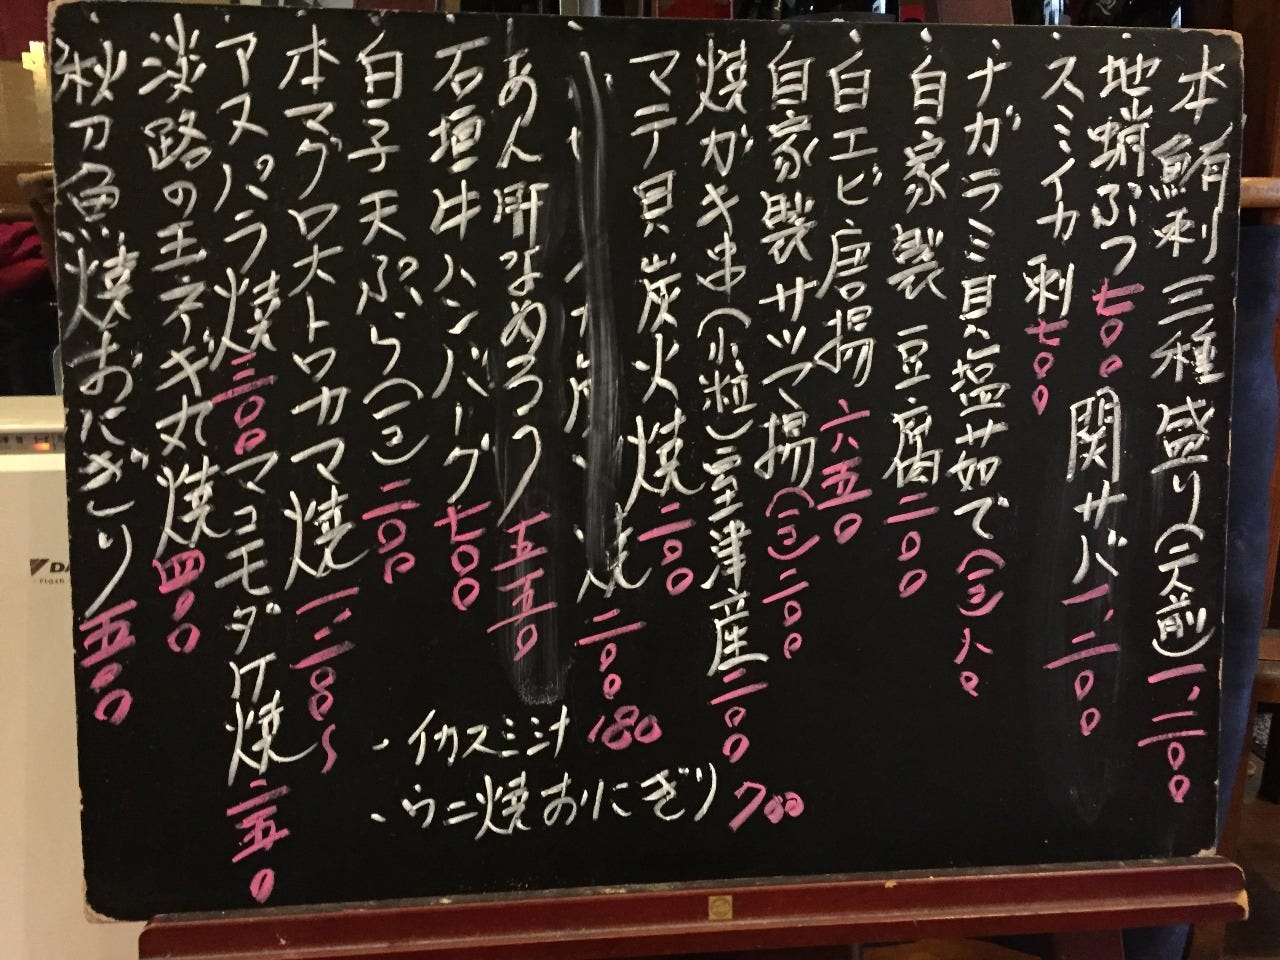 本鮪刺三種盛り(二人前)一、二〇〇
地蛸ぶつ七〇〇 関サバ一、二〇〇
スミイカ刺七〇〇
ナガラミ貝塩茹で(一コ)八〇
自家製豆腐二〇〇
白エビ唐揚六五〇
自家製サツマ揚(一コ)二〇〇
焼がキ串(小粒)室津産二〇〇
マテ貝炭火焼二〇〇
焼二〇〇
あん肝なめろう五五〇
石垣牛ハンバーグ七〇〇
白子天ぷら(一コ)二〇〇
本マグロ大トロカマ焼一、二〇〇〜
アスパラ焼三〇〇 マコモダケ焼二五〇
淡路の玉ネギ丸焼四〇〇
秋刀魚焼おにぎり五〇〇
・イカスミ汁 180
・ウニ焼おにぎり 700